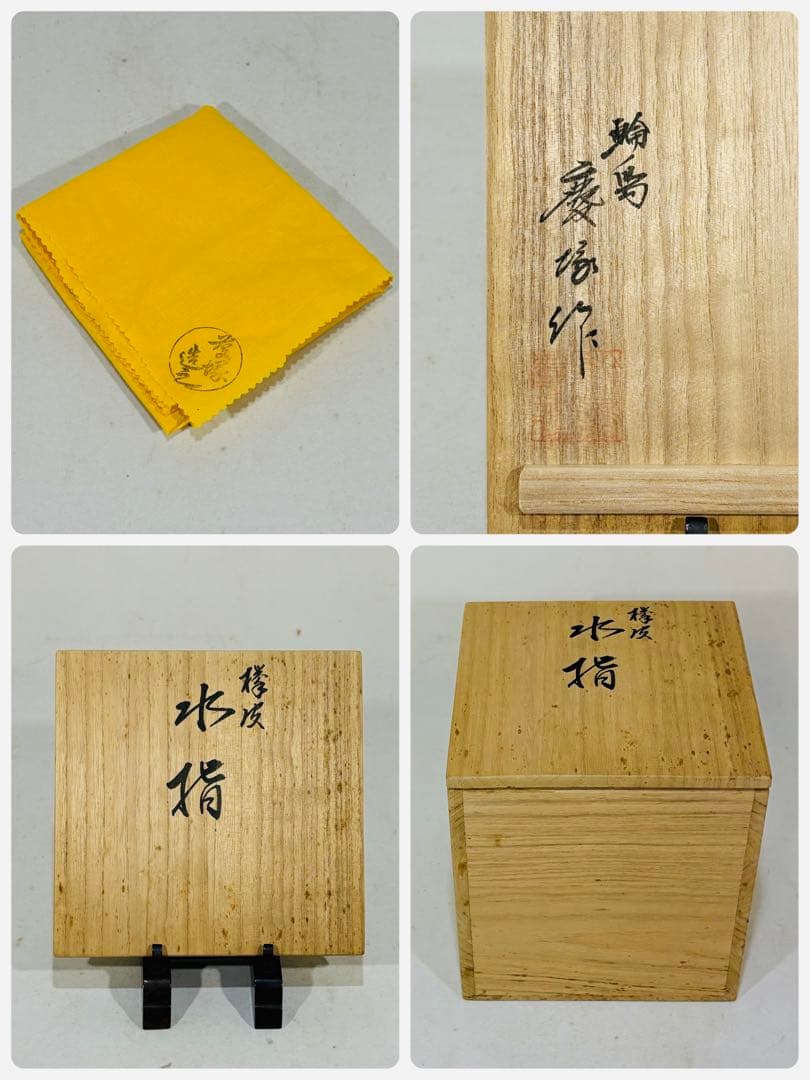 輪島
慶塚作
樺皮
水指
樺皮
水指